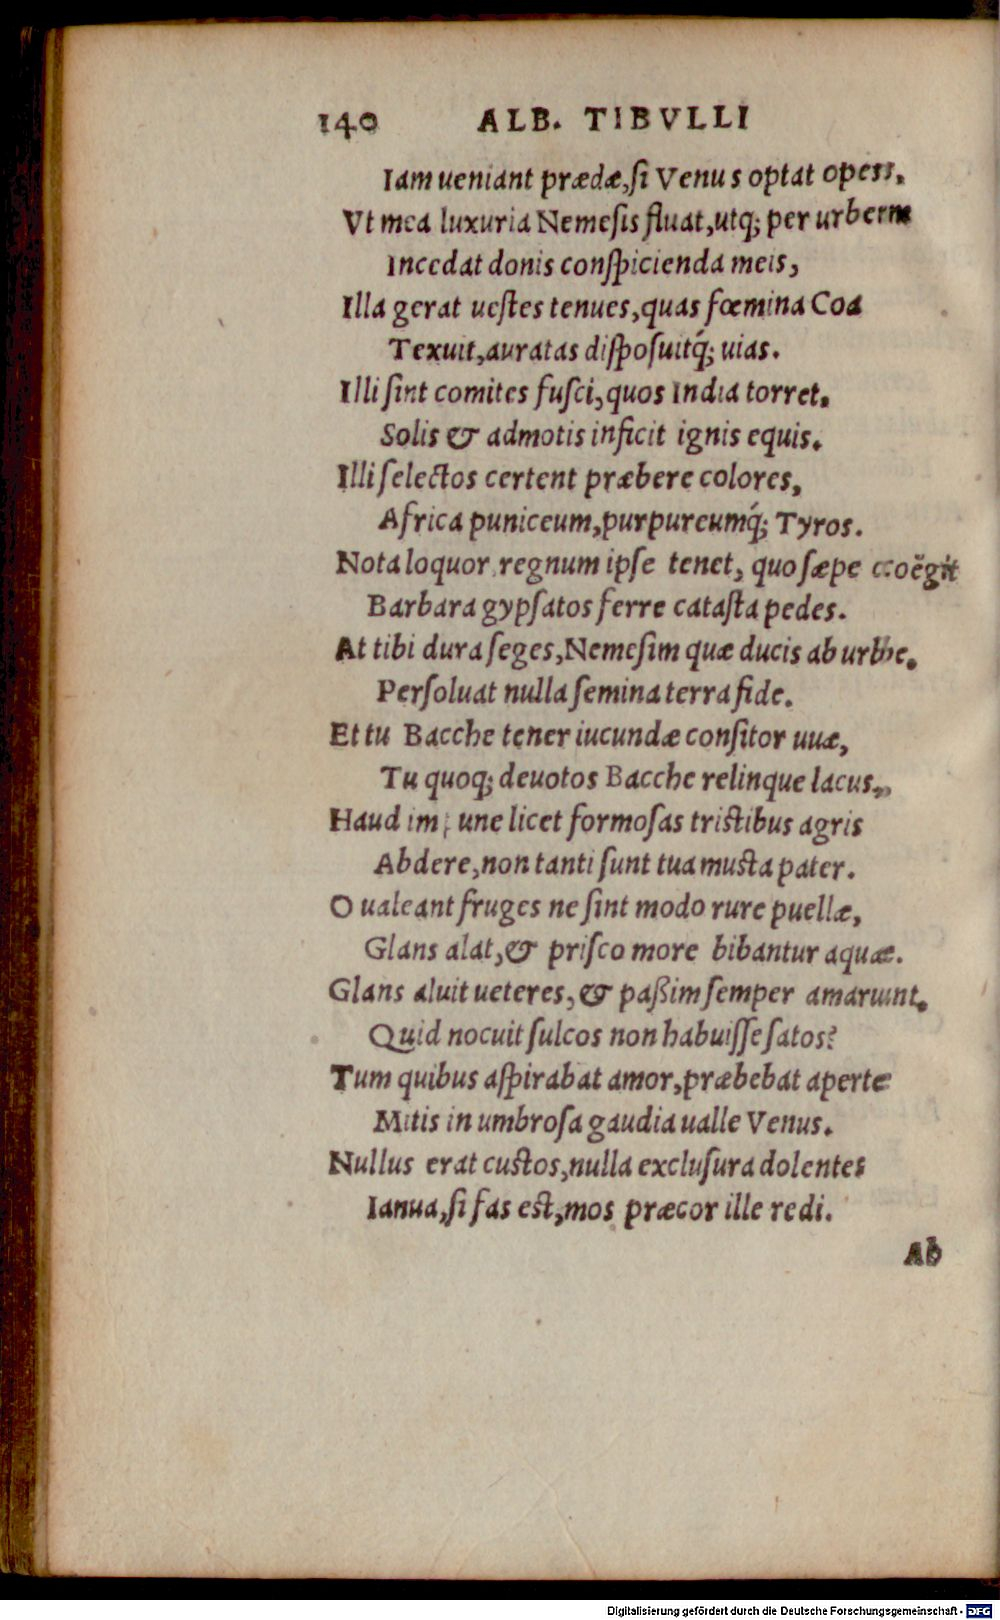 140 ALB. TIBVLLI
Iam ueniant prædæ,ſi Venus optat opes.
Vt mea luxuria Nemeſis fluat,utq; per urbem
Incedat donis conſpicienda meis,
Illa gerat ueſtes tenues,quas fœmina Coa
Texuit,auratas diſpoſuitq́; uias.
Illi ſint comites fuſci,quos India torret.
Solis & admotis inficit ignis equis.
Illi ſelectos certent præbere colores,
Africa puniceum,purpureumq́; Tyros.
Nota loquor regnum ipſe tenet, quo ſæpe coëgit
Barbara gypſatos ferre cataſta pedes.
At tibi dura ſeges,Nemeſim quæ ducis ab urbe.
Perſoluat nulla ſemina terra fide.
Et tu Bacche tener iucundæ conſitor uuæ,
Tu quoq; deuotos Bacche relinque lacus.
Haud impune licet formoſas triſtibus agris
Abdere,non tanti ſunt tua muſta pater.
O ualeant fruges ne ſint modo rure puellæ,
Glans alat,& priſco more bibantur aquæ.
Glans aluit ueteres,& paßim ſemper amarunt.
Quid nocuit ſulcos non habuiſſe ſatos?
Tum quibus aſpirabat amor,præbebat aperte
Mitis in umbroſa gaudia ualle Venus.
Nullus erat cuſtos,nulla excluſura dolentes
Ianua,ſi fas eſt,mos præcor ille redi.
Ab
Digitalisierung gefördert durch die Deutsche Forschungsgemeinschaft - DFG